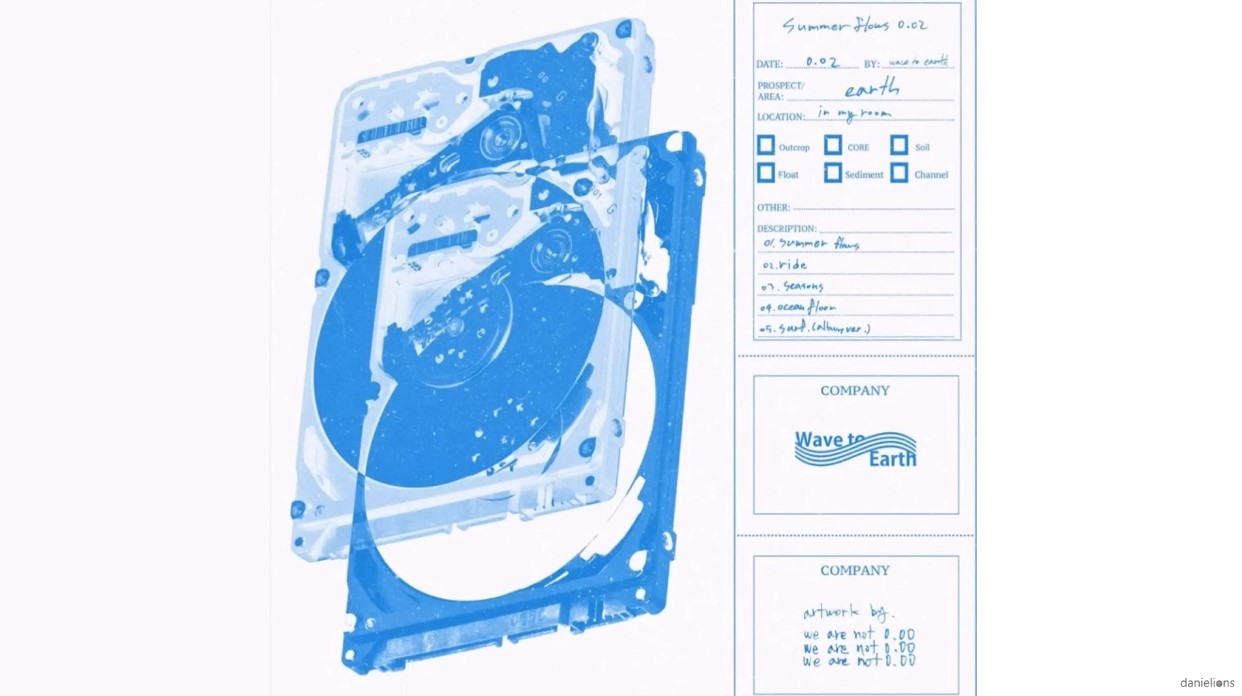 Summer flows 0.02
DATE: 0.02 BY: wave to earth
PROSPECT/
AREA: earth
LOCATION: in my room
Outcrop CORE Soil
Float Sediment Channel
OTHER:
DESCRIPTION:
01. summer flows
02. ride
03. seasons
04. ocean floor
05. surf. (album ver.)
COMPANY
Wave to
Earth
COMPANY
artwork by.
we are not 0.00
we are not 0.00
we are not 0.00
danielions